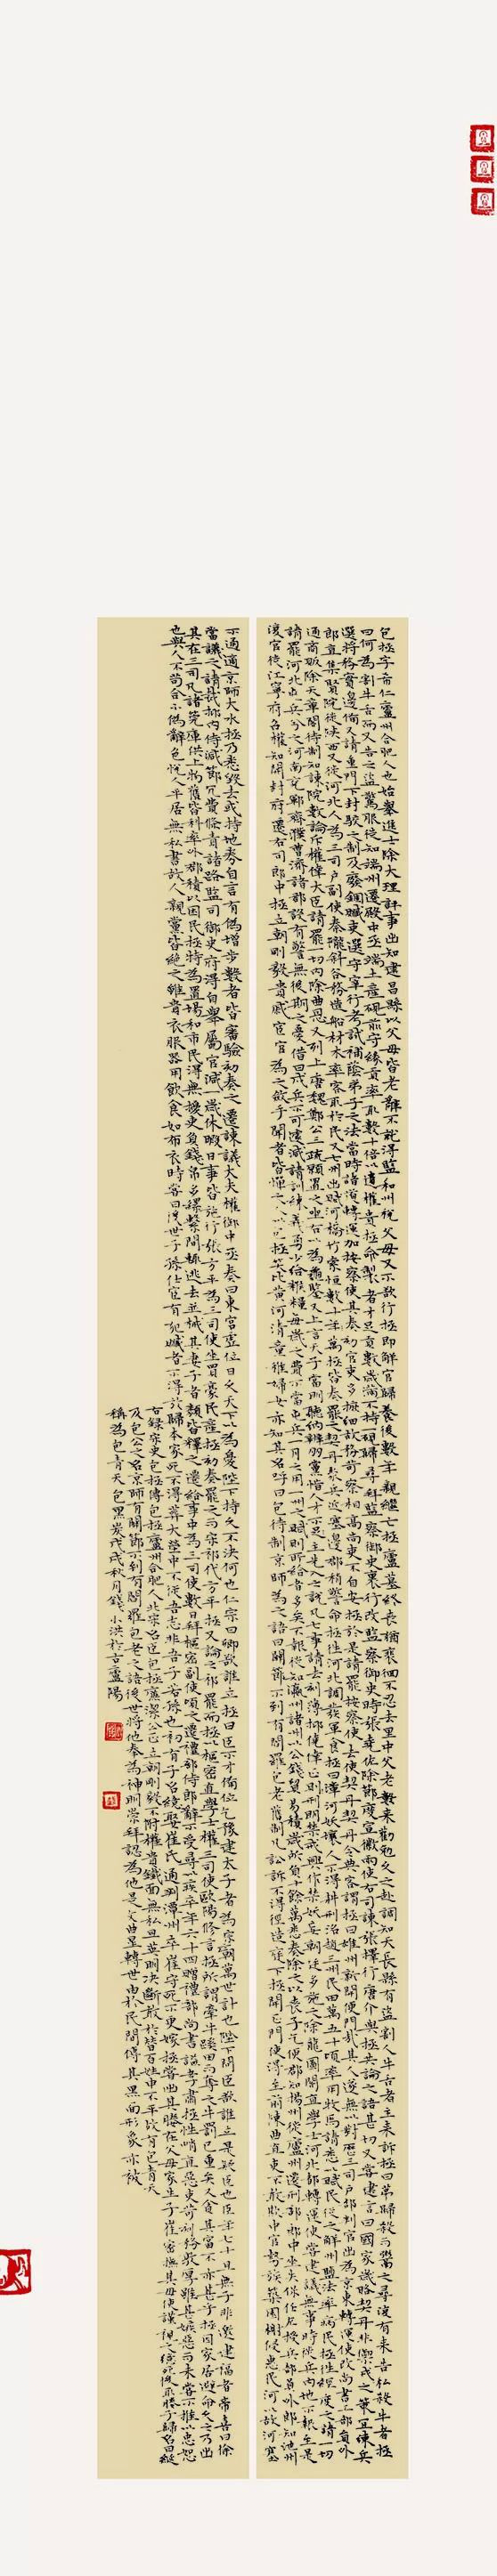 包拯字希仁廬州合肥人也始舉進士除大理評事出知建昌縣以父母皆老辭不就得監和州稅父母又不欲行拯即解官歸養後數年親繼亡拯廬墓終喪猶裴徊不忍去里中父老數來勸勉久之赴調知天長縣有盜割人牛舌者主來訴拯曰第歸殺而鬻之尋復有來告私殺牛者拯
曰何為割牛舌而又告之盜驚服徙知端州遷殿中丞端土產硯前守緣貢率取數十倍以遺權貴拯命製者才足貢數歲滿不持一硯歸尋拜監察御史裏行改監察御史時張堯佐除節度宣徽兩使右司諫張擇行唐介與拯共論之語甚切又嘗建言曰國家歲賂契丹非禦戎之策宜練兵
選將務實邊備又請重門下封駁之制及廢錮贓吏選守宰行考試補蔭弟子之法當時諸道轉運加按察使其奏劾官吏多摭細故務苛察相高尚吏不自安拯於是請罷按察使去使契丹契丹令典客謂拯曰雄州新開便門乃其人遂無以對歷三司戶部判官出為京東轉運使改尚書工部員外
郎直集賢院徙陝西又徙河北入為三司戶部副使秦隴斜谷務造船材木率課取於民又七州出賦河橋竹索恒數十萬拯皆奏罷之契丹聚兵近塞邊郡稍警命拯往河北調發軍食拯曰漳河沃壤人不得耕邢洺趙三州民田萬五千頃率用牧馬請悉以賦民從之解州鹽法率病民拯往經度之請一切
通商販除天章閣待制知諫院數論斥權倖大臣請罷一切內除曲恩又列上唐魏鄭公三疏願置之坐右以為龜鑒又上言天子當明聽納辨朋黨惜人才不主先入之說凡七事請去刻薄抑僥倖正刑明禁戒興作禁妖妄朝廷多施行之除龍圖閣直學士河北都轉運使嘗建議無事時徙兵內地不報至是
請罷河北屯兵分之河南兗鄆齊濮曹濟諸郡設有警無後期之憂借曰戍兵不可遽減請訓練義勇少給糇糧每歲之費不當屯兵一月之用一州之賦則所給者多矣不報徙知瀛州諸州以公錢貿易積歲所負十餘萬悉奏除之以喪子乞便郡知揚州徙廬州遷刑部郎中坐失保任左授兵部員外郎知池州
復官徙江寧府召權知開封府遷右司郎中拯立朝剛毅貴戚宦官為之斂手聞者皆憚之人以包拯笑比黃河清童稚婦女亦知其名呼曰包待制京師為之語曰關節不到有閻羅包老舊制凡訟訴不得徑造庭下拯開正門使得至前陳曲直吏不敢欺中官勢族築園榭侵惠民河以故河塞
不通適京師大水拯乃悉毀去或持地券自言有偽增步數者皆審驗劾奏之遷諫議大夫權御史中丞奏曰東宮虛位日久天下以為憂陛下持久不決何也仁宗曰卿欲誰立拯曰臣不才備位乞豫建太子者為宗廟萬世計也陛下問臣欲誰立是疑臣也臣年七十且無子非邀福者帝喜曰徐
當議之請裁抑內侍減節冗費條責諸路監司御史府得自舉屬官減一歲休暇日事皆施行張方平為三司使坐買豪民產拯劾奏罷之而宋祁代方平拯又論之祁罷而拯以樞密直學士權三司使歐陽修言拯所謂牽牛蹊田而奪之牛罰已重矣又貪其富不亦甚乎拯因家居避命久之乃出
其在三司凡諸筦庫供上物舊皆科率外郡積以困民拯特為置場和市民得無擾吏負錢帛多縲繫間輒逃去并械其妻子者類皆釋之遷給事中為三司使數日拜樞密副使頃之遷禮部侍郎辭不受尋以疾卒年六十四贈禮部尚書諡孝肅拯性峭直惡吏苛刻務敦厚雖甚嫉惡而未嘗不推以忠恕
也與人不苟合不偽辭色悅人平居無私書故人親黨皆絕之雖貴衣服器用飲食如布衣時嘗曰後世子孫仕宦有犯贓者不得放歸本家死不得葬大塋中不從吾志非吾子若孫也初有子名繶娶崔氏通判潭州卒崔守死不更嫁拯嘗出其媵在父母家生子崔密撫其母使謹視之繶死後取媵子歸名曰綖
右錄宋史包拯傳包拯廬州合肥人北宋名臣包拯廉潔公正立朝剛毅不附權貴鐵面無私且英明決斷敢於替百姓申不平故有包青天
及包公之名京師有關節不到有閻羅包老之語後世將他奉為神明崇拜認為他是文曲星轉世由於民間傳其黑面形象亦被
稱為包青天包黑炭戊戌秋月錢小洪於古廬陽